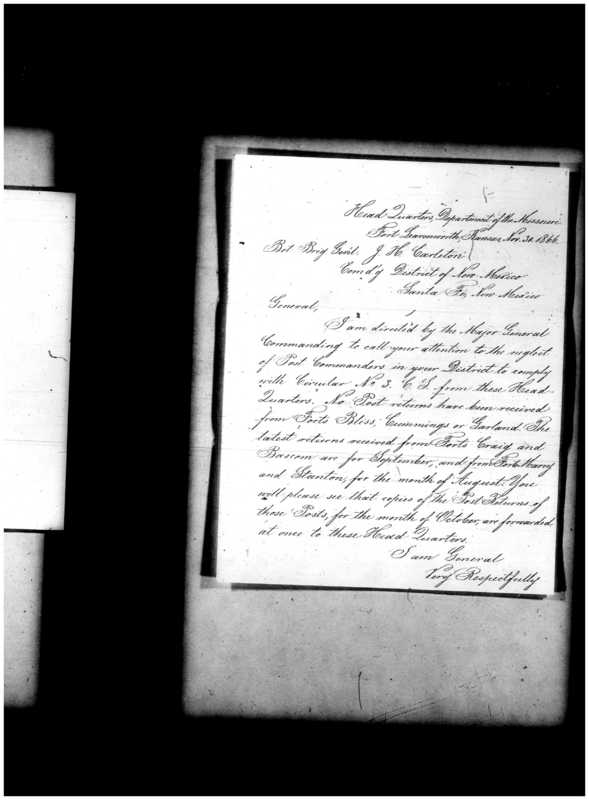 Head Quarters, Department of the Missouri
Fort Leavenworth, Kansas, Nov. 30. 1866.
Bvt Brig Genl. J. H. Carleton
Comd'g District of New Mexico
Santa Fe, New Mexico
General,
I am directed by the Major General
Commanding to call your attention to the neglect
of Post Commanders in your District to comply
with Circular No 3. C. S. from these Head-
Quarters. No Post returns have been received
from Forts Bliss, Cummings or Garland. The
latest returns received from Forts Craig and
Bascom are for September, and from Forts
and Stanton, for the month of August. You
will please see that copies of the Post Returns of
those Posts, for the month of October, are forwarded
at once to these Head Quarters.
I am General
Very Respectfully